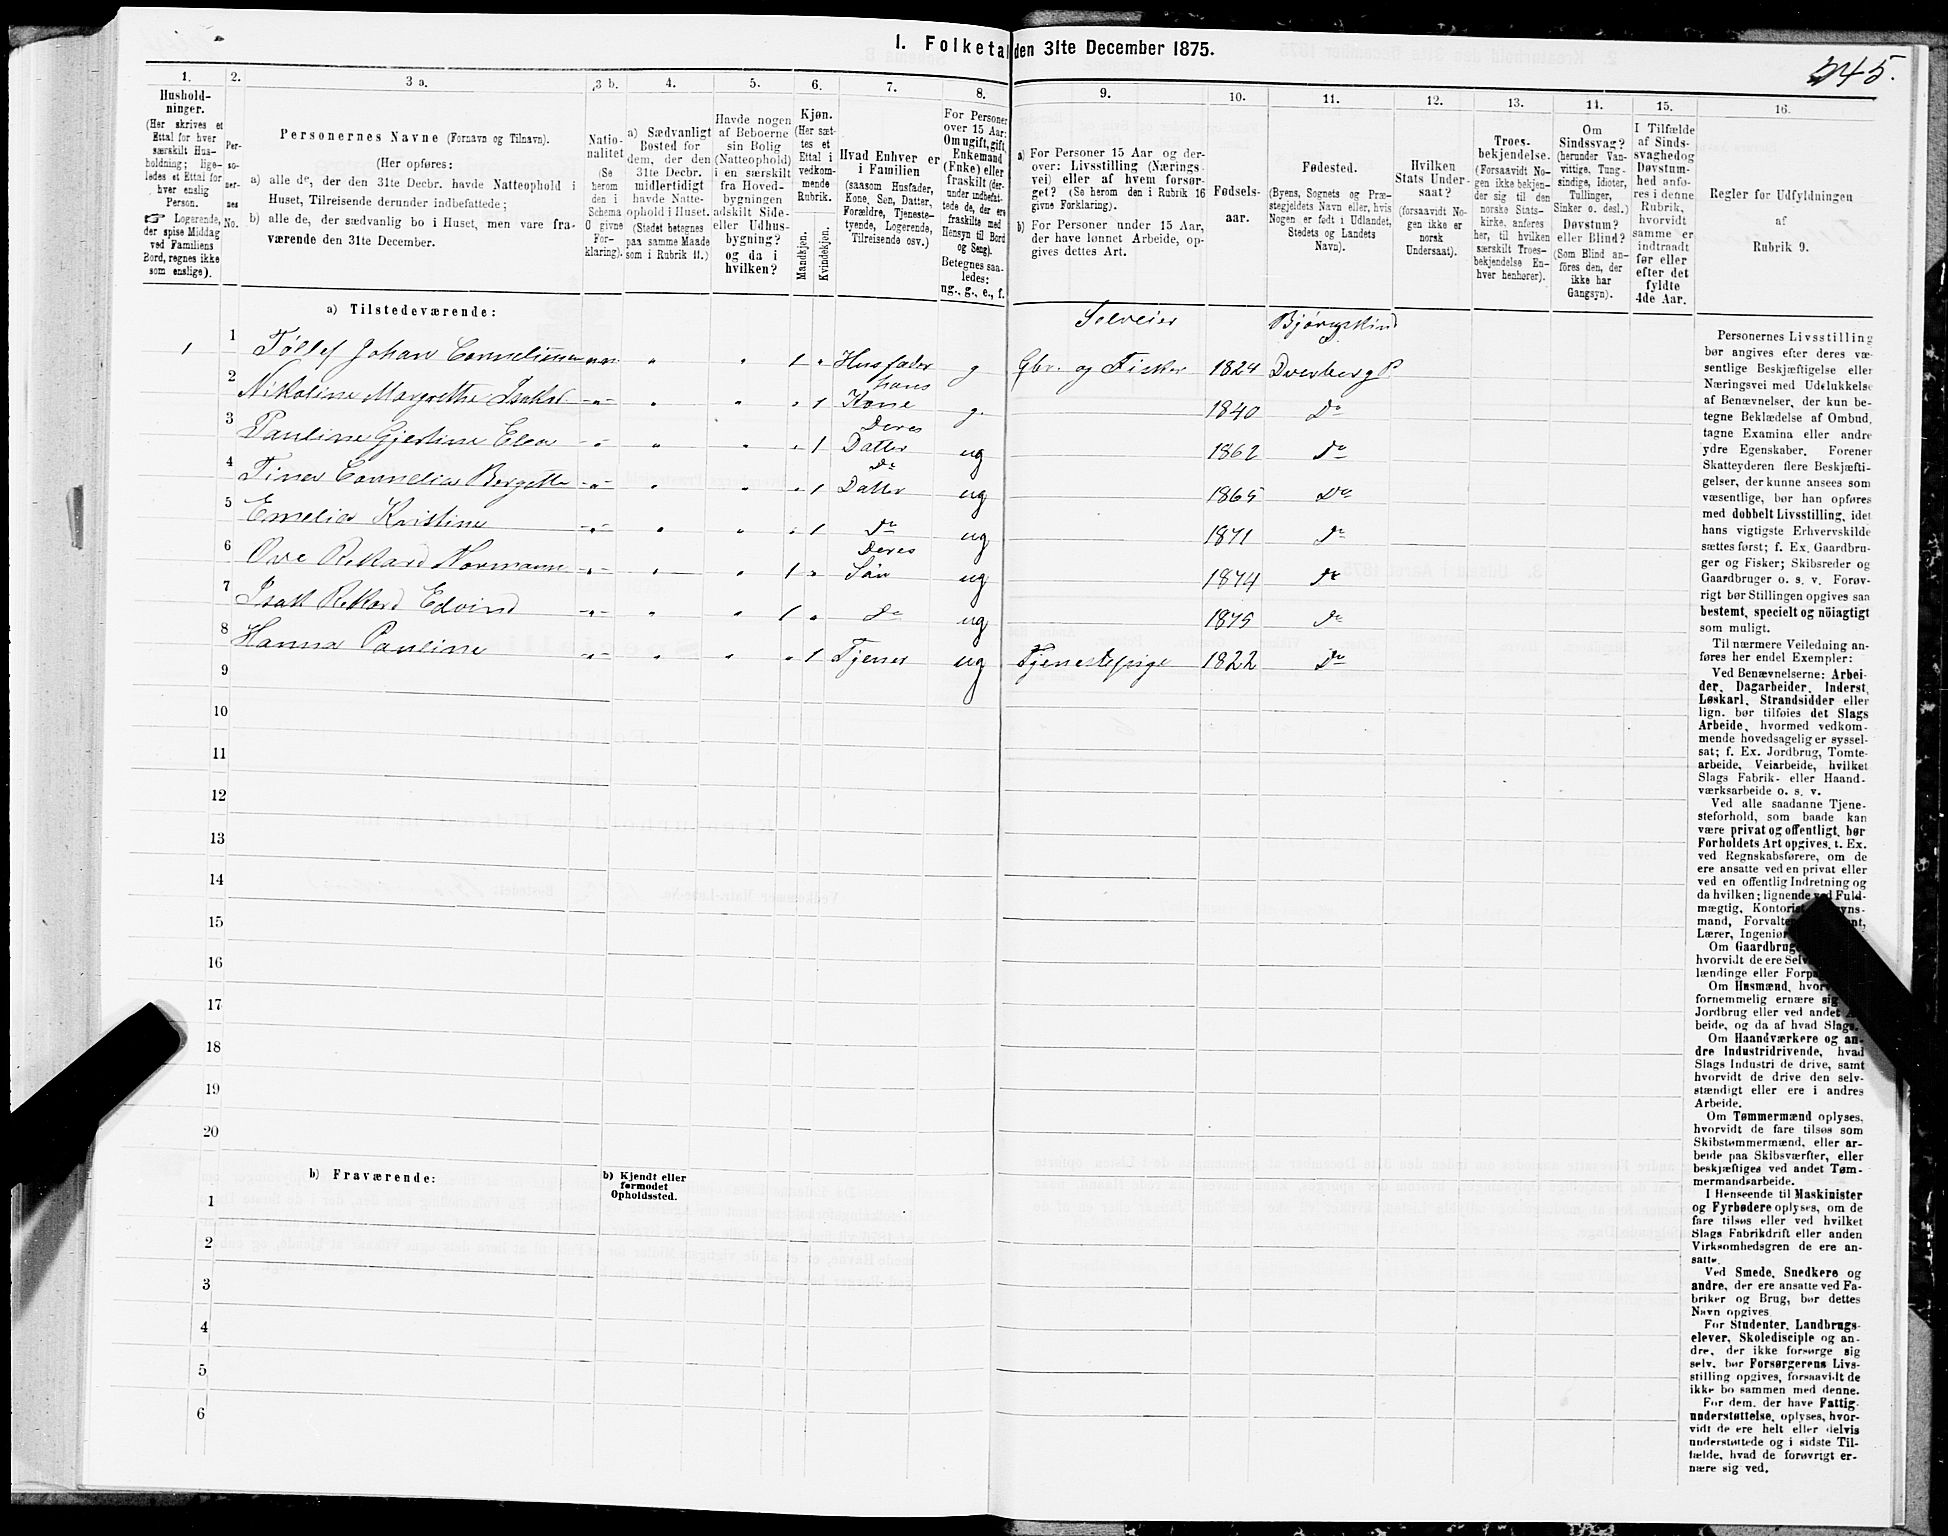 I. Folketal den 31te December 1875.
245.
1.
2.
3 a.
3 b.
4.
5.
6.
7.
8.
9.
10.
11.
12.
13.
14.
15.
16.
Hushold-
ninger.
(Her skrives et
Ettal for hver
særskilt Hus-
holdning; lige-
ledes et Ettal for
hver enslig
Person.
☞ Logerende,
der spise Middag
ved Familiens
Bord, regnes ikke
som enslige).
Per-
so-
ner-
nes
No.
Personernes Navne (Fornavn og Tilnavn).
(Her opføres:
a) alle de, der den 31te Decbr. havde Natteophold i
Huset, Tilreisende derunder indbefattede;
b) alle de, der sædvanlig bo i Huset, men vare fra-
værende den 31te December.
Natio-
nalitet
(Se
herom
den i
Schema
O givne
For-
klaring).
a) Sædvanligt
Bosted for
dem, der den
31te Decbr.
midlertidigt
havde Natte-
ophold i Huset.
(Stedet betegnes
paa samme Maade
som i Rubrik 11.)
Havde nogen
af Beboerne
sin Bolig
(Natteophold)
i en særskilt
fra Hoved-
bygningen
adskilt Side-
eller Udhus-
bygning?
og da i
hvilken?
Kjøn.
(Her sæt-
tes et
Ettal i
vedkom-
mende
Rubrik.
Mandkjøn.
Kvindekjøn.
Hvad Enhver er
i Familien
(saasom Husfader,
Kone, Søn, Datter,
Forældre, Tjeneste-
tyende, Logerende,
Tilreisende osv.)
For Personer
over 15 Aar:
Om ugift, gift,
Enkemand
(Enke) eller
fraskilt (der-
under indbefat-
tede de, der ere
fraskilte med
Hensyn til Bord
og Seng).
Betegnes saa-
ledes:
ug., g., e., f.
a) For Personer 15 Aar og der-
over: Livsstilling (Nærings-
vei) eller af hvem forsør-
get? (Se herom den i Rubrik 16
givne Forklaring).
b) For Personer under 15 Aar,
der have lønnet Arbeide, op-
gives dettes Art.
Fødsels-
aar.
Fødested.
(Byens, Sognets og Præ-
stegjeldets Navn eller, hvis
Nogen er født i Udlandet,
Stedets og Landets
Navn).
Hvilken
Stats Under-
saat?
(forsaavidt No-
gen ikke er
norsk
Undersaat).
Troes-
bekjendelse.
(Forsaavidt No-
gen ikke bekjen-
der sig til den
norske Stats-
kirke, anføres
her, til hvilken
særskilt Troes-
bekjendelse En-
hver henhører).
Om
Sindssvag?
(herunder Van-
vittige, Tung-
sindige, Idioter,
Tullinger,
Sinker o. desl.)
Døvstum?
eller Blind?
(Som Blind an-
føres den, der
ikke har
Gangsyn).
I Tilfælde
af Sinds-
svaghed og
Døvstum-
hed anfø-
res i denne
Rubrik,
hvorvidt
samme er
indtraadt
før eller
efter det
fyldte
4de Aar.
Regler for Udfyldningen
af
Rubrik 9.
a) Tilstedeværende:
Selveier Bjørnskind
1 1 Tøllef Johan Corneliussen n 1 Husfader g Gbr. og Fisker 1824 Dverberg P
hans
2 Nikoline Margrethe Isaksd 1 Kone g. 1840 Do
Deres
3 Pauline Gjertine Elea 1 Datter ug 1862 Do
Do
4 Tinea Cornelia Bergette 1 Datter ug 1865 Do
5 Emelia Kristine 1 Do ug 1871 Do
Deres
6 Ove Rikard Normann 1 Søn ug 1874 Do
7 Isak Rikard Edvind 1 Do ug 1875 Do
8 Hanna Pauline 1 Tjener ug Tjenestepige 1822 Do
9
10
11
12
13
14
15
16
17
18
19
20
b) Fraværende:
b) Kjendt eller
formodet
Opholdssted.
1
2
3
4
5
6
Personernes Livsstilling
bør angives efter deres væ-
sentlige Beskjæftigelse eller
Næringsvei med Udelukkelse
af Benævnelser, der kun be-
tegne Beklædelse af Ombud,
tagne Examina eller andre
ydre Egenskaber. Forener
Skatteyderen flere Beskjæfti-
gelser, der kunne ansees som
væsentlige, bør han opføres
med dobbelt Livsstilling, idet
hans vigtigste Erhvervskilde
sættes først; f. Ex. Gaardbru-
ger og Fisker; Skibsreder og
Gaardbruger o. s. v. Forøv-
rigt bør Stillingen opgives saa
bestemt, specielt og nöiagtigt
som muligt.
Til nærmere Veiledning an-
føres her endel Exempler:
Ved Benævnelserne: Arbei-
der, Dagarbeider, Inderst,
Løskarl, Strandsidder eller
lign. bør tilføies det Slags
Arbeide, hvormed vedkom-
mende hovedsagelig er syssel-
sat; f. Ex. Jordbrug, Tomte-
arbeide, Veiarbeide, hvilket
Slags Fabrik- eller Haand-
værksarbeide o. s. v.
Ved alle saadanne Tjene-
steforhold, som baade kan
være privat og offentligt, bør
Forholdets Art opgives, t. Ex.
ved Regnskabsførere, om de
ere ansatte ved en privat eller
ved en offentlig Indretning og
da hvilken; lignende ved Fuld-
mægtig, Kontorist,
mand, Forvalter
Lærer, Ingeniør
Om Gaardbrug
hvorvidt de ere Selv
lændinge eller Forpa
Om Husmænd, hvor
fornemmelig ernære sig
Jordbrug eller ved andet
beide, og da af hvad Slags.
Om Haandværkere og an-
dre Industridrivende, hvad
Slags Industri de drive, samt
hvorvidt de drive den selv-
stændigt eller ere i andres
Arbeide.
Om Tømmermænd oplyses,
hvorvidt de fare tilsøs som
Skibstømmermænd, eller ar-
beide paa Skibsværfter, eller
beskjæftiges ved andet Tøm-
mermandsarbeide.
I Henseende til Maskinister
og Fyrbødere oplyses, om de
fare tilsøs eller ved hvilket
Slags Fabrikdrift eller anden
Virksomhedsgren de ere an-
satte.
Ved Smede, Snedkere og
andre, der ere ansatte ved Fa-
briker og Brug, bør dettes
Navn opgives
For Studenter, Landbrugs-
elever, Skoledisciple og an-
dre, der ikke forsørge sig
selv, bør Forsørgerens Livs-
stilling opgives, forsaavidt de
ikke bo sammen med denne.
For dem, der have Fattig-
understøttelse, oplyses, hvor-
vidt de ere helt eller delvis
understøttede og i sidste Til-
fælde, hvad de forøvrigt er-
nære sig ved.